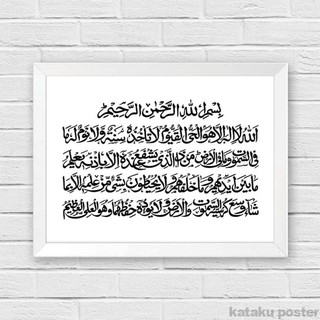 بسم الله الرحمن الرحيم
الله لا إله إلا هو الحي القيوم لا تأخذه سنة ولا نوم له ما
في السموات وما في الأرض من ذا الذي يشفع عنده إلا بإذنه يعلم
ما بين أيديهم وما خلفهم ولا يحيطون بشئ من علمه إلا بما
شاء وسع كرسيه السموات والأرض ولا يؤده حفظهما وهو العلي العظيم
kataku poster